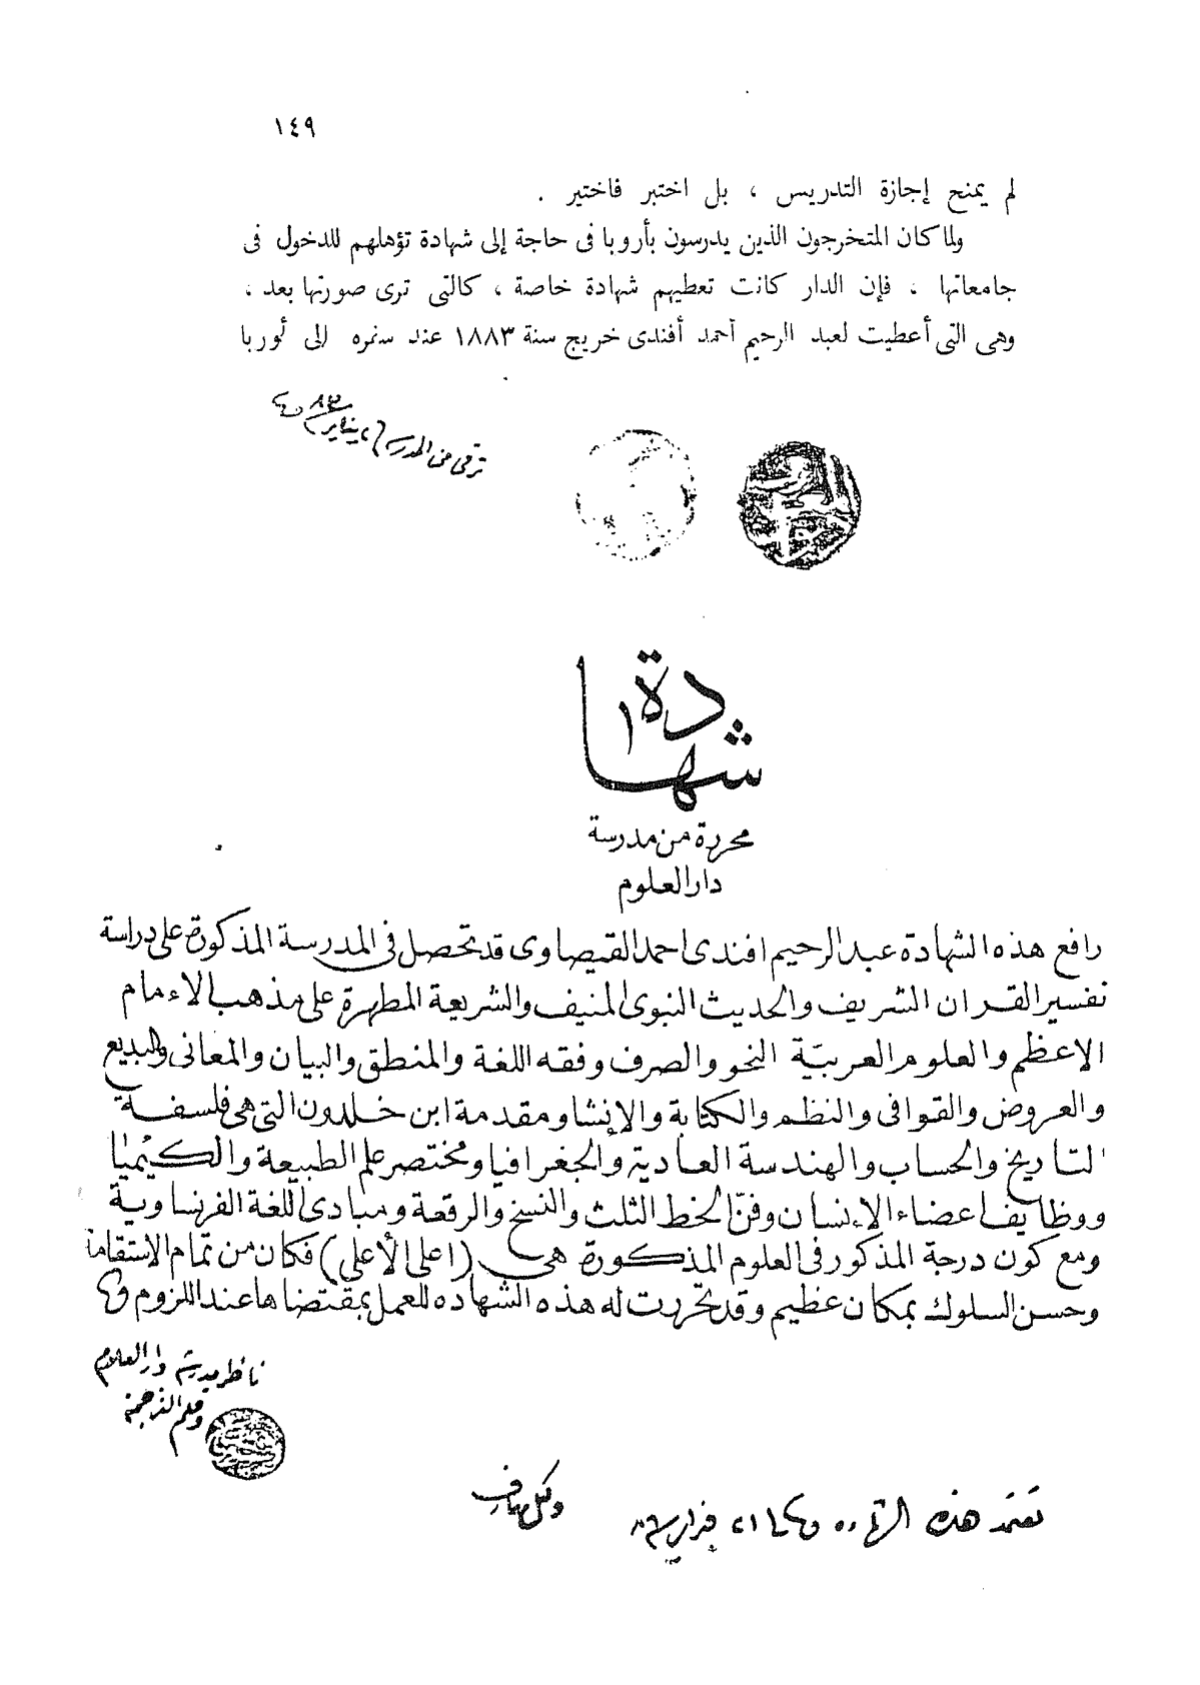 ١٤٩
لم يمنح إجازة التدريس ، بل اختبر فاختير .
ولما كان المتخرجون الذين يدرسون بأروبا فى حاجة إلى شهادة تؤهلهم للدخول فى
جامعاتها ، فإن الدار كانت تعطيهم شهادة خاصة ، كالتى ترى صورتها بعد ،
وهى التى أعطيت لعبد الرحيم أحمد أفندى خريج سنة ١٨٨٣ عند سفره إلى أوربا
ترقى من المدرسة يناير ٨٣
شهادة
محررة من مدرسة
دار العلوم
رافع هذه الشهادة عبد الرحيم افندى احمد القيصاوى قد تحصل فى المدرسة المذكورة على دراسة
تفسير القران الشريف والحديث النبوى المنيف والشريعة المطهرة على مذهب الاءمام
الاعظم والعلوم العربيّة النحو والصرف وفقه اللغة والمنطق والبيان والمعانى والبديع
والعروض والقوافى والنظم والكتابة والإنشا ومقدمة ابن خلدون التى هى فلسفة
التاريخ والحساب والهندسة العادية والجغرافيا ومختصر علم الطبيعة والكيميا
ووظايف اعضاء الاءنسان وفنّ الخط الثلث والنسخ والرقعة ومبادى اللغة الفرنساوية
ومع كون درجة المذكور فى العلوم المذكورة هى (اعلى الأعلى) فكان من تمام الاستقامة
وحسن السلوك بمكان عظيم وقد تحررت له هذه الشهاده للعمل بمقتضاها عند اللزوم
ناظر مدرسة دار العلوم
وقلم الترجمة
وكيل معارف
تعتمد هذه الشهاده ٢١ فبراير